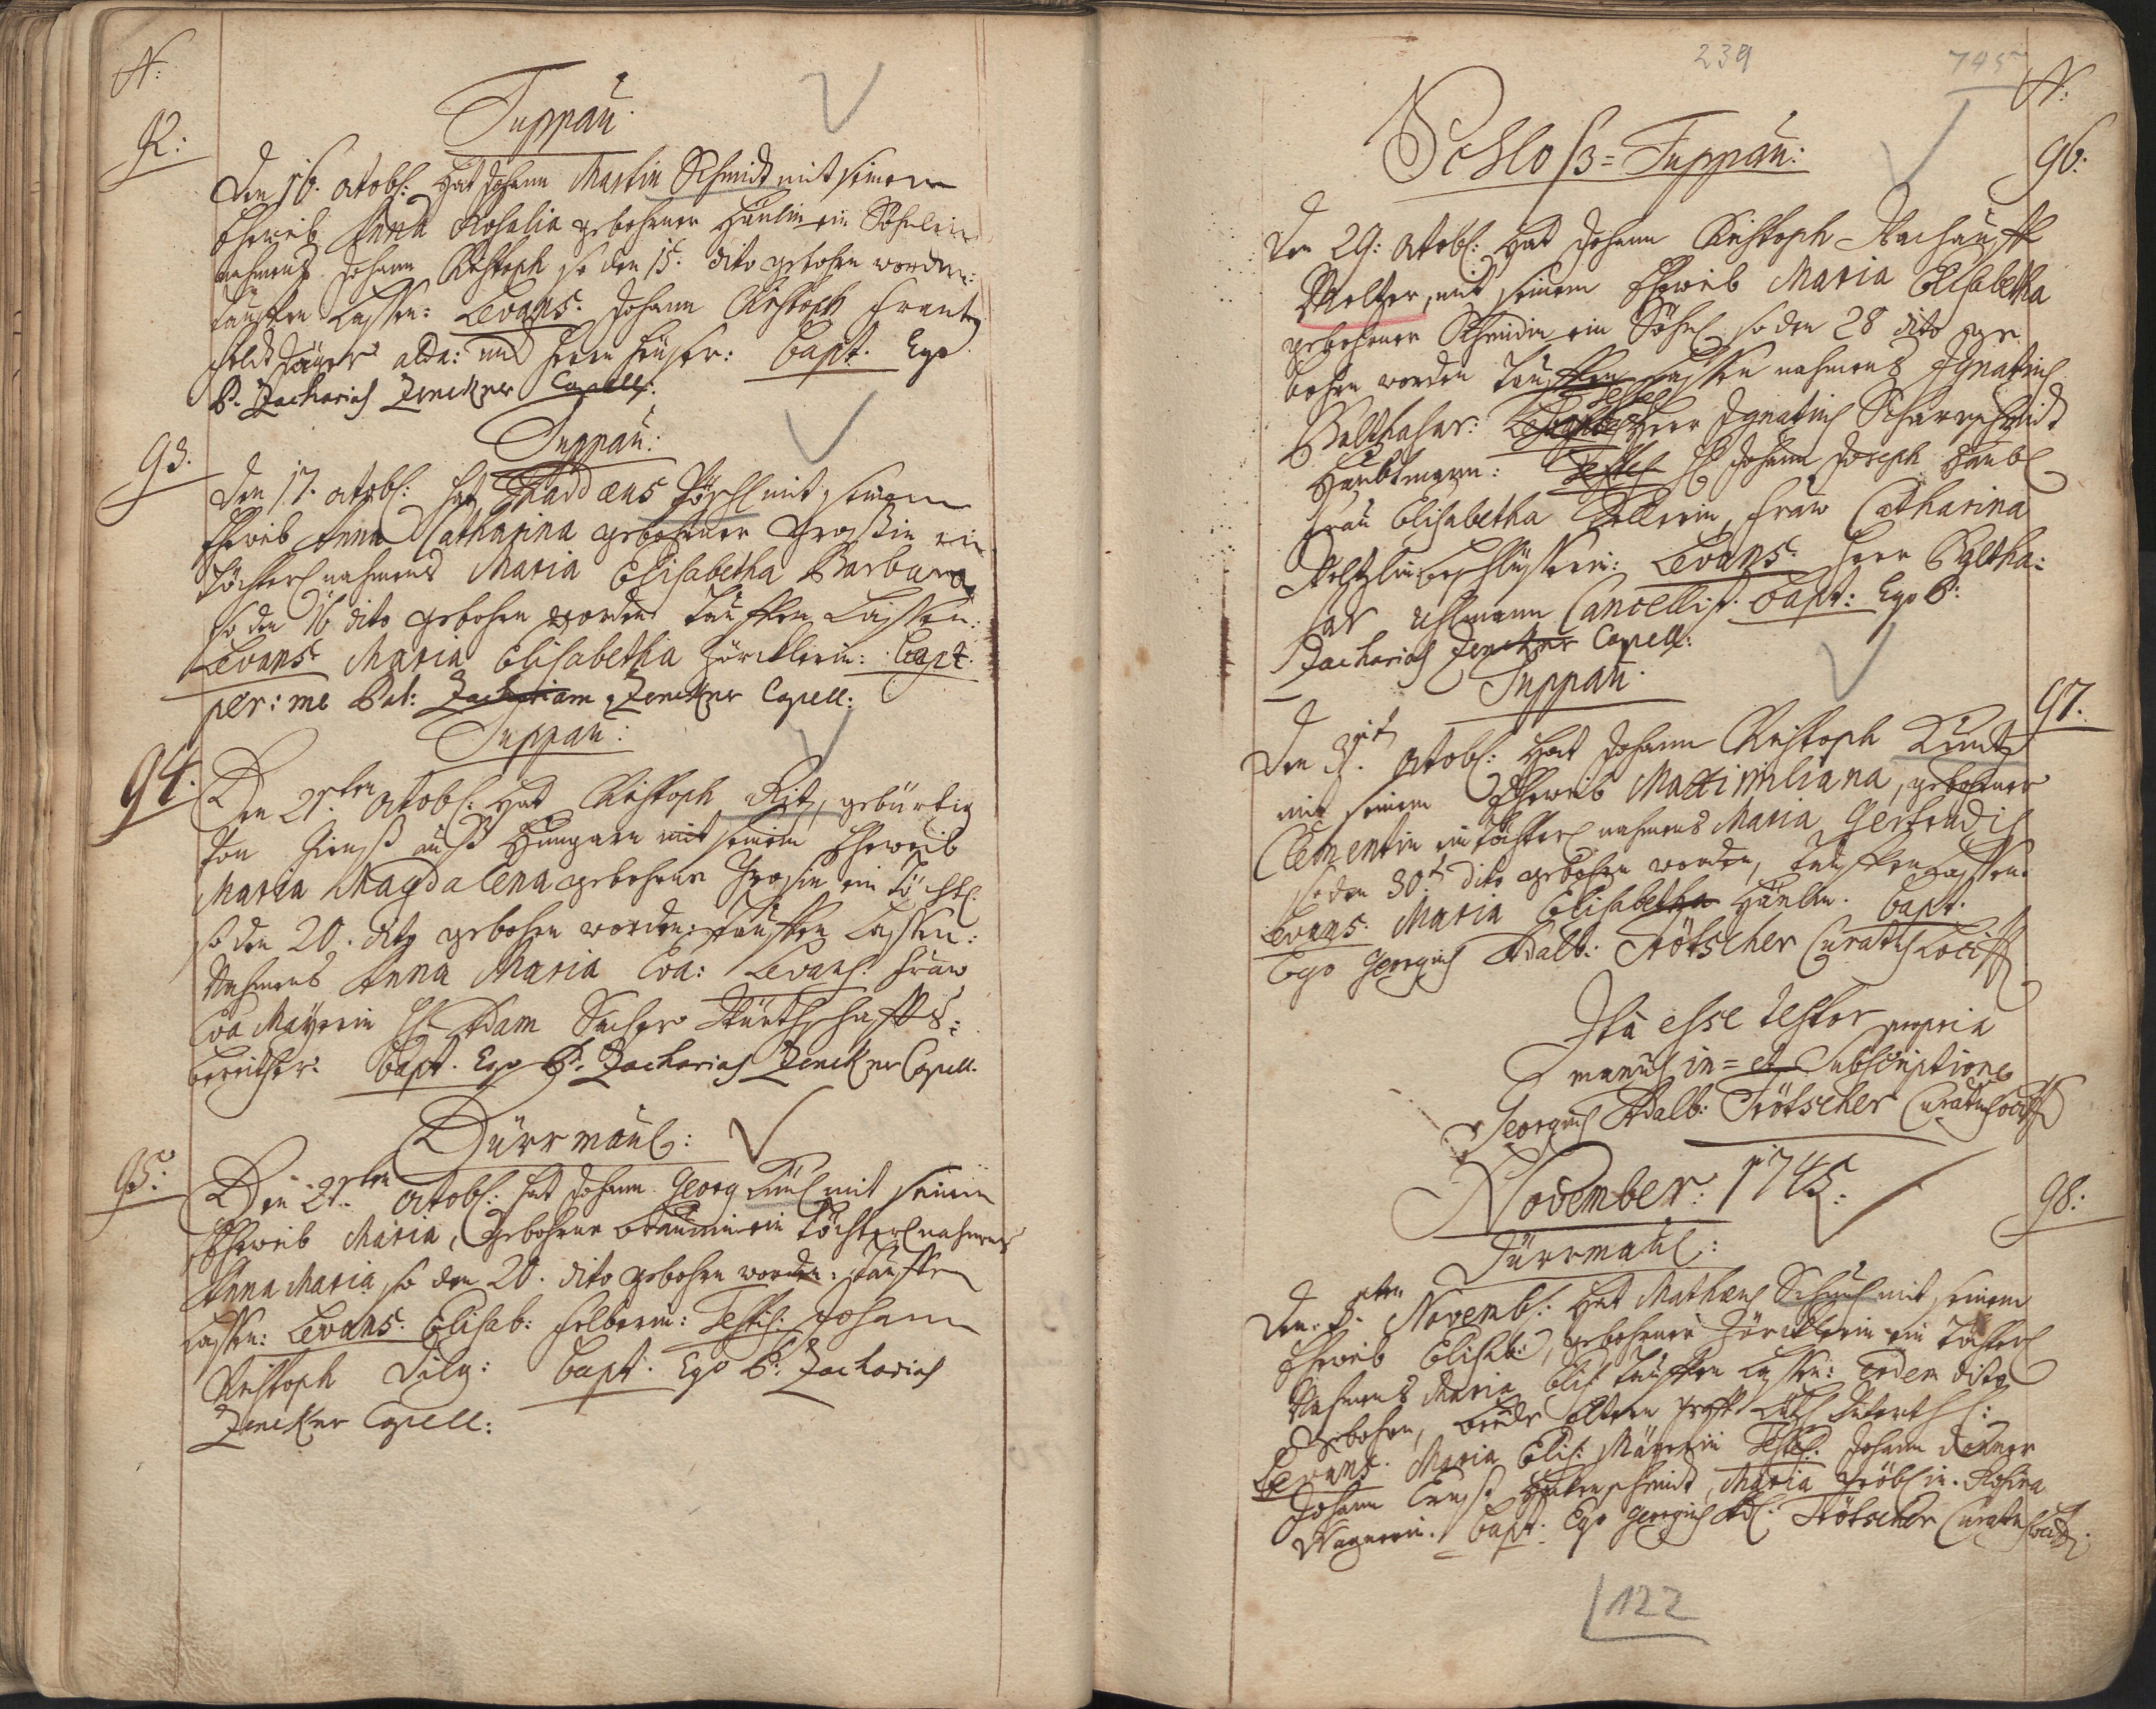 N:
92:
Tuppau:
Den 16. octobl: Hat Johann Martin Schmidt mit seinem
Eheweib Anna Rosalia gebohrner Häulin ein Söhnlein
nahmens Johann Christoph so den 15. dito gebohren worden:
tauffen Lassen: Levans: Johann Christoph Frantz
Feldt Jäger alda: und Herrn Häusler: Bapt. Ego
P. Zacharias Zenckner Capell:
93.
Tuppau:
Den 17. octobl: hat Thaddaeus Pöschl mit seinem
Eheweib Anna Catharina gebohrner Grossin ein
Töchterl nahmens Maria Elisabetha Barbara
so den 16 dito gebohren worden tauffen Lassen:
Levans Maria Elisabetha Hörcklerin: Bapt.
per: me Pat: Zachariam Zenckner Capell:
94.
Tuppau:
Den 21.ten octobl: Hat Christoph Ritz, gebürtig
von auß Hungarn mit seinem Eheweib
Maria Magdalena gebohrne ein Töchtl:
so den 20. dito gebohren worden: tauffen Lassen:
Nahmens Anna Maria Eva: Levans: Fraw
Eva Mayerin H: Adam Sacher Würthschaffts:
bereither: Bapt. Ego P. Zacharias Zenckner Capell.
95:
Dürrmaul:
Den 21.ten octobl: hat Johann Georg mit seinem
Eheweib Maria, gebohrne Braunin ein Töchterl nahmens
Anna Maria so den 20. dito gebohren worden: tauffen
Lassen: Levans: Elisab: Felberin: Testis: Johann
Christoph Bapt. Ego P: Zacharias
Zenckner Capell:
239
745
N:
96:
Schloß=Tuppau:
Den 29: octobl: Hat Johann Christoph
Meltzer, mit seinem Eheweib Maria Elisabetha
gebohrner Schmidin ein Söhnl: so den 28 dito ge
bohren worden tauffen Lassen nahmens Ignatius
Balthasar: Testes Herr Ignatius Scharschmidt
Haubtmann: Testes H: Johann Joseph
Frau Elisabetha Fraw Catharina
Levans: Herr Baltha:
sar Uhlmann Cancellist. Bapt: Ego P:
Zacharias Zenckner Capell:
97.
Tuppau:
Den 31.t octobl: Hat Johann Christoph
mit seinem Eheweib Maximiliana, gebohrner
Clementin ein Töchterl nahmens Maria Gertrudis
so den 30.t dito gebohren worden, tauffen Lassen.
Levans: Maria Elisabetha Bapt.
Ego Georgius Adalb: Trötscher Curatus Loci
Ita esse testor propria
manus in= et Subscriptione
Georgius Adalb: Trötscher Curatus Loci
November: 1745:
98:
Dürrmaul:
Den Novembl: Hat Mathaeus mit seinem
Eheweib Elisab:, gebohrner Hörcklerin ein Töchterl
Nahmens Maria Elis: tauffen Lassen: eodem dito
gebohren, beede Eltern
Levans: Maria Elis: Mayerin Testes: Johann
Johann Ernst Maria Rosina
Wagnerin. Bapt: Ego Georgius Ad: Trötscher Curatus Loci
122